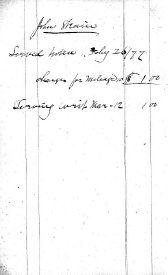 John
Served notice July 26/77
charges for mileage $ 1 00
Serving writ Mar-12 1 00